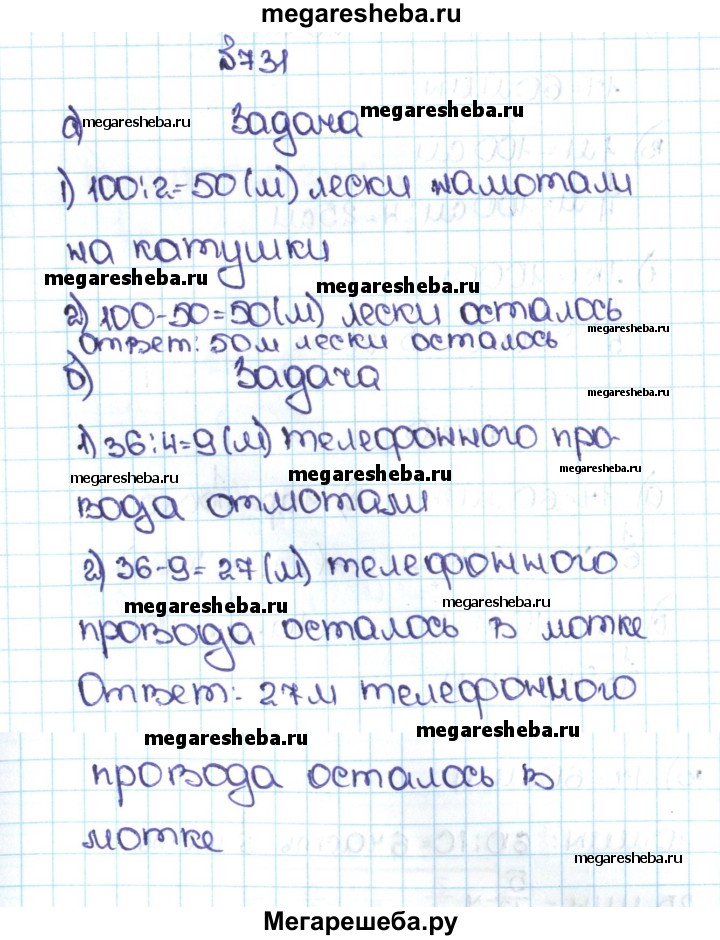 megaresheba.ru
№731
а) megaresheba.ru Задача megaresheba.ru
1) 100:2=50 (м) лески намотали
на катушки
megaresheba.ru megaresheba.ru
2) 100-50=50(м) лески осталось
megaresheba.ru
Ответ: 50м лески осталось
б) Задача megaresheba.ru
1) 36:4=9 (м) телефонного про-
megaresheba.ru megaresheba.ru megaresheba.ru
вода отмотали
2) 36-9=27 (м) телефонного
megaresheba.ru megaresheba.ru
провода осталось в мотке
Ответ: 27м телефонного
megaresheba.ru megaresheba.ru
провода осталось в
мотке
megaresheba.ru
Мегарешеба.ру